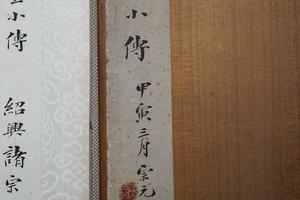 小傳
甲寅三月宗元
小傳
紹興諸宗